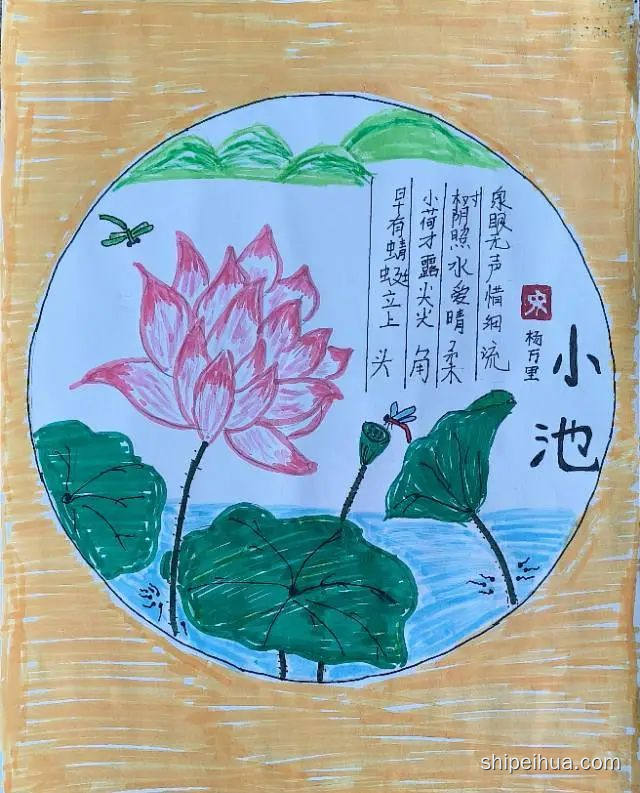 小池
宋
杨万里
泉眼无声惜细流
树阴照水爱晴柔
小荷才露尖尖角
早有蜻蜓立上头
shipeihua.com